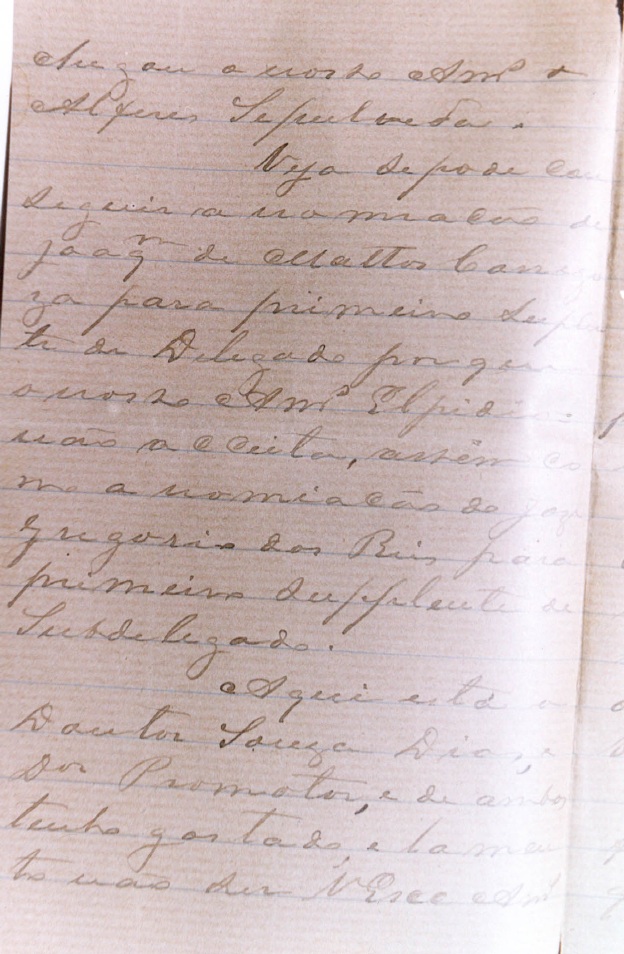 chegou o nosso Amº o
Alferes Sepulveda.
Veja se pode con
seguir a nomiacão de
Joaqm de Mattos
za para primeiro Suplen
te do Delegado porque
o nosso Amº Elpidio
não acceita, assim co
mo a nomiacão do
Gregorio dos Reis para
primeiro Supplente de
Subdelegado.
Aqui está o
Doutor Souza Dias, e
Dor Promotor, e de ambos
tenho gostado, e lamen
to não ser VExce Amº